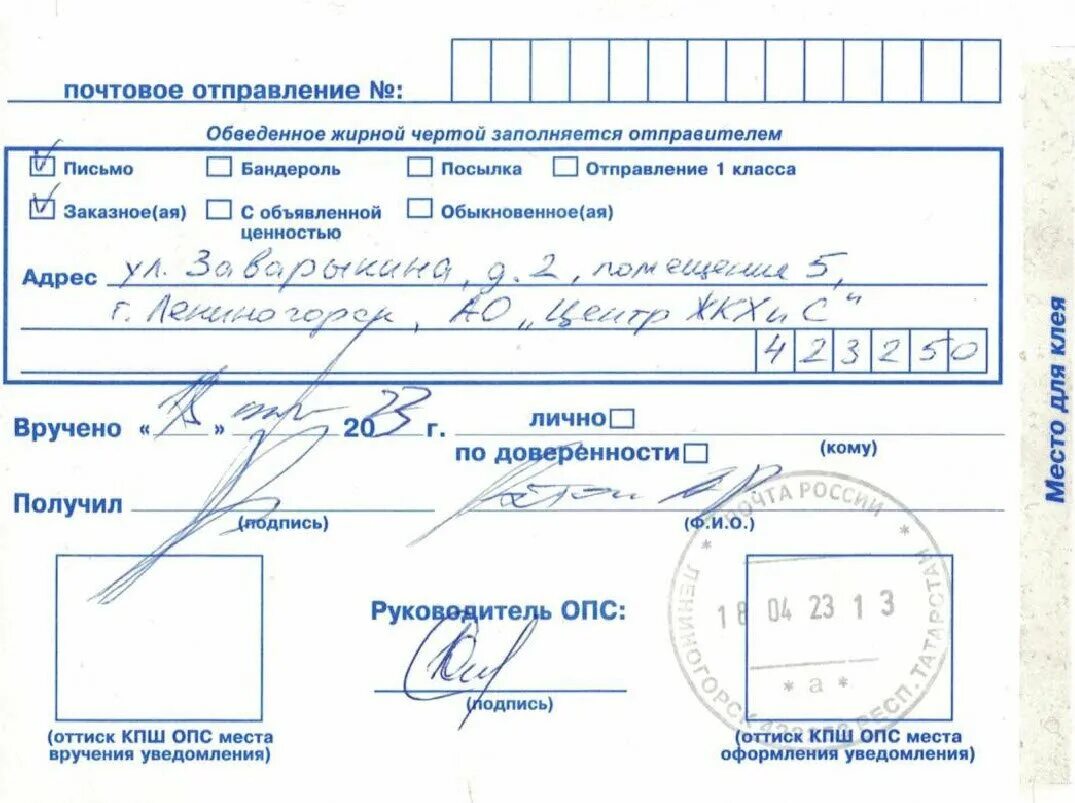 почтовое отправление №:
Обведенное жирной чертой заполняется отправителем
Письмо Бандероль Посылка Отправление 1 класса
Заказное(ая) С объявленной ценностью Обыкновенное(ая)
Адрес ул. Заварыкина, д. 2, помещение 5,
г. Лениногорск, АО „Центр ЖКХиС“
423250
Вручено « 18 » 2023 г. лично
по доверенности (кому)
Получил
(подпись) (Ф.И.О.)
Руководитель ОПС:
(подпись)
(оттиск КПШ ОПС места
вручения уведомления)
ПОЧТА РОССИИ
18 04 23 13
* а *
ЛЕНИНОГОРСК РЕСП. ТАТАРСТАН
(оттиск КПШ ОПС места
оформления уведомления)
Место для клея